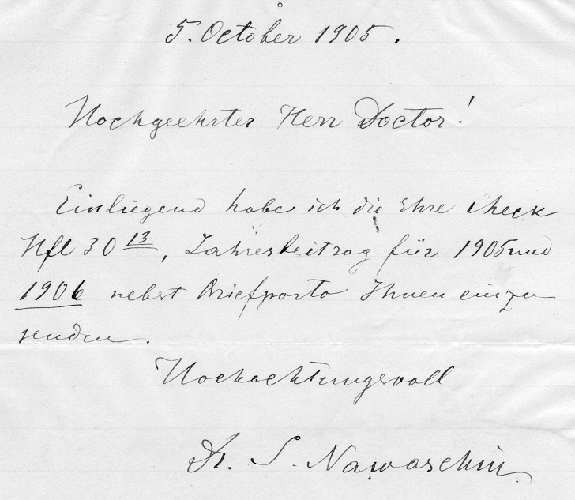 5. October 1905.
Hochgeehrter Herr Doctor!
Einliegend habe ich die Ehre Check
Hfl 30 13, Jahresbeitrag für 1905 und
1906 nebst Briefporto Ihnen einzu
senden.
Hochachtungsvoll
Dr. S. Nawaschin